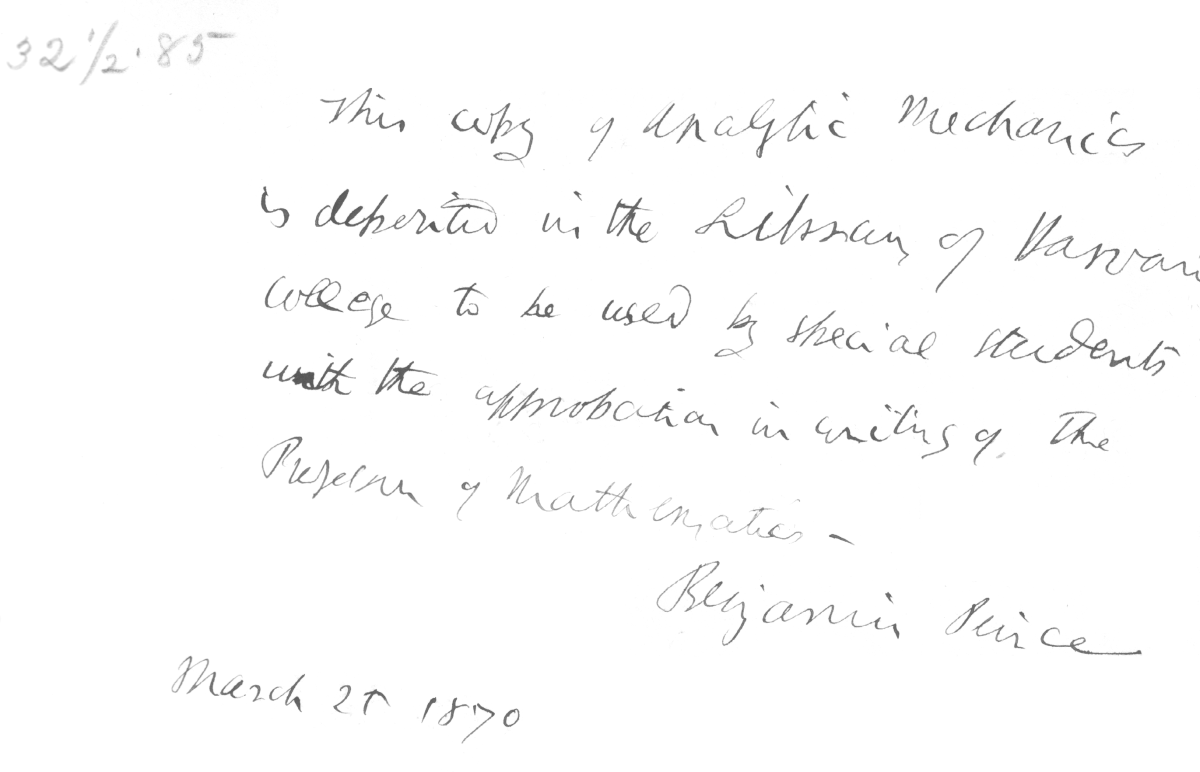 32 1/2. 85
This copy of Analytic Mechanics
is deposited in the Library of Harvar
College to be used by special students
with the approbation in writing of the
Professor of Mathematics –
Benjamin Peirce
March 1870